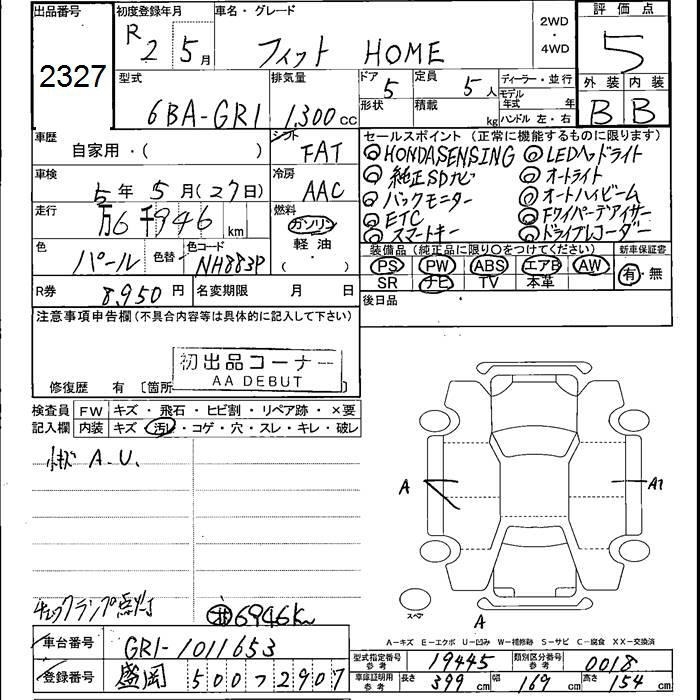 出品番号 初度登録年月 車名・グレード 2WD 評価点
2327 R2 5月 フィット HOME ・4WD 5
型式 排気量 ドア 定員 ディーラー・並行 外装 内装
6BA-GR1 1,300cc 5 5人 モデル年式 年 B B
形状 積載 kg ハンドル 左・右
車歴 シフト セールスポイント (正常に機能するものに限ります)
自家用・( ) FAT HONDASENSING LEDヘッドライト
車検 冷房 純正SDナビ オートライト
5年 5月(27日) AAC バックモニター オートハイビーム
走行 燃料 ETC Fワイパーデアイサー
万6千946km ガソリン スマートキー ドライブレコーダー
軽油・
( )
色 色替 色コード 装備品 (純正品に限り○をつけてください) 新車保証書
パール NH883P PS PW ABS エアB AW 有・無
SR ナビ TV 本革
R券 8,950円 名変期限 月 日 後日品
注意事項申告欄 (不具合内容等は具体的に記入して下さい)
初出品コーナー
AA DEBUT
修復歴 有 [箇所 ]
検査員 FW キズ・飛石・ヒビ割・リペア跡・×要
記入欄 内装 キズ・汚れ・コゲ・穴・スレ・キレ・破レ
小キズ A.U.
A A1
チェックランプ点灯 6946Km
スペア A
A-キズ E-エクボ U-凹み W-補修跡 S-サビ C-腐食 XX-交換済
車台番号 GR1-1011653
型式指定番号 参考 19445 類別区分番号 参考 0018
登録番号 盛岡 500 2907
車庫証明用 参考 長さ 399cm 幅 169cm 高さ 154cm